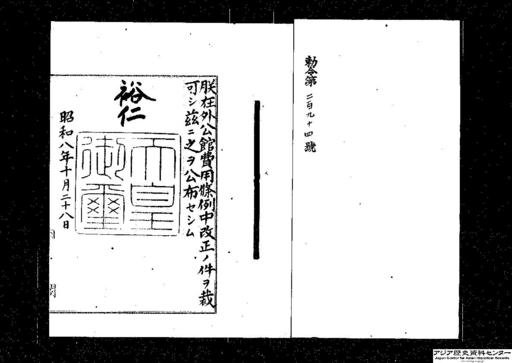 勅令第二百九十四號
朕在外公館費用條例中改正ノ件ヲ裁
可シ茲ニ之ヲ公布セシム
裕仁
天皇
御璽
昭和八年十月二十八日
アジア歴史資料センター
Japan Center for Asian Historical Records